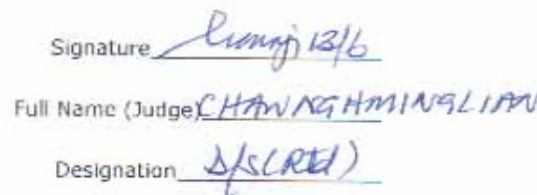 Signature 13/6
Full Name (Judge) CHAWNGHMINGLIAN
Designation D/S (Rtd)